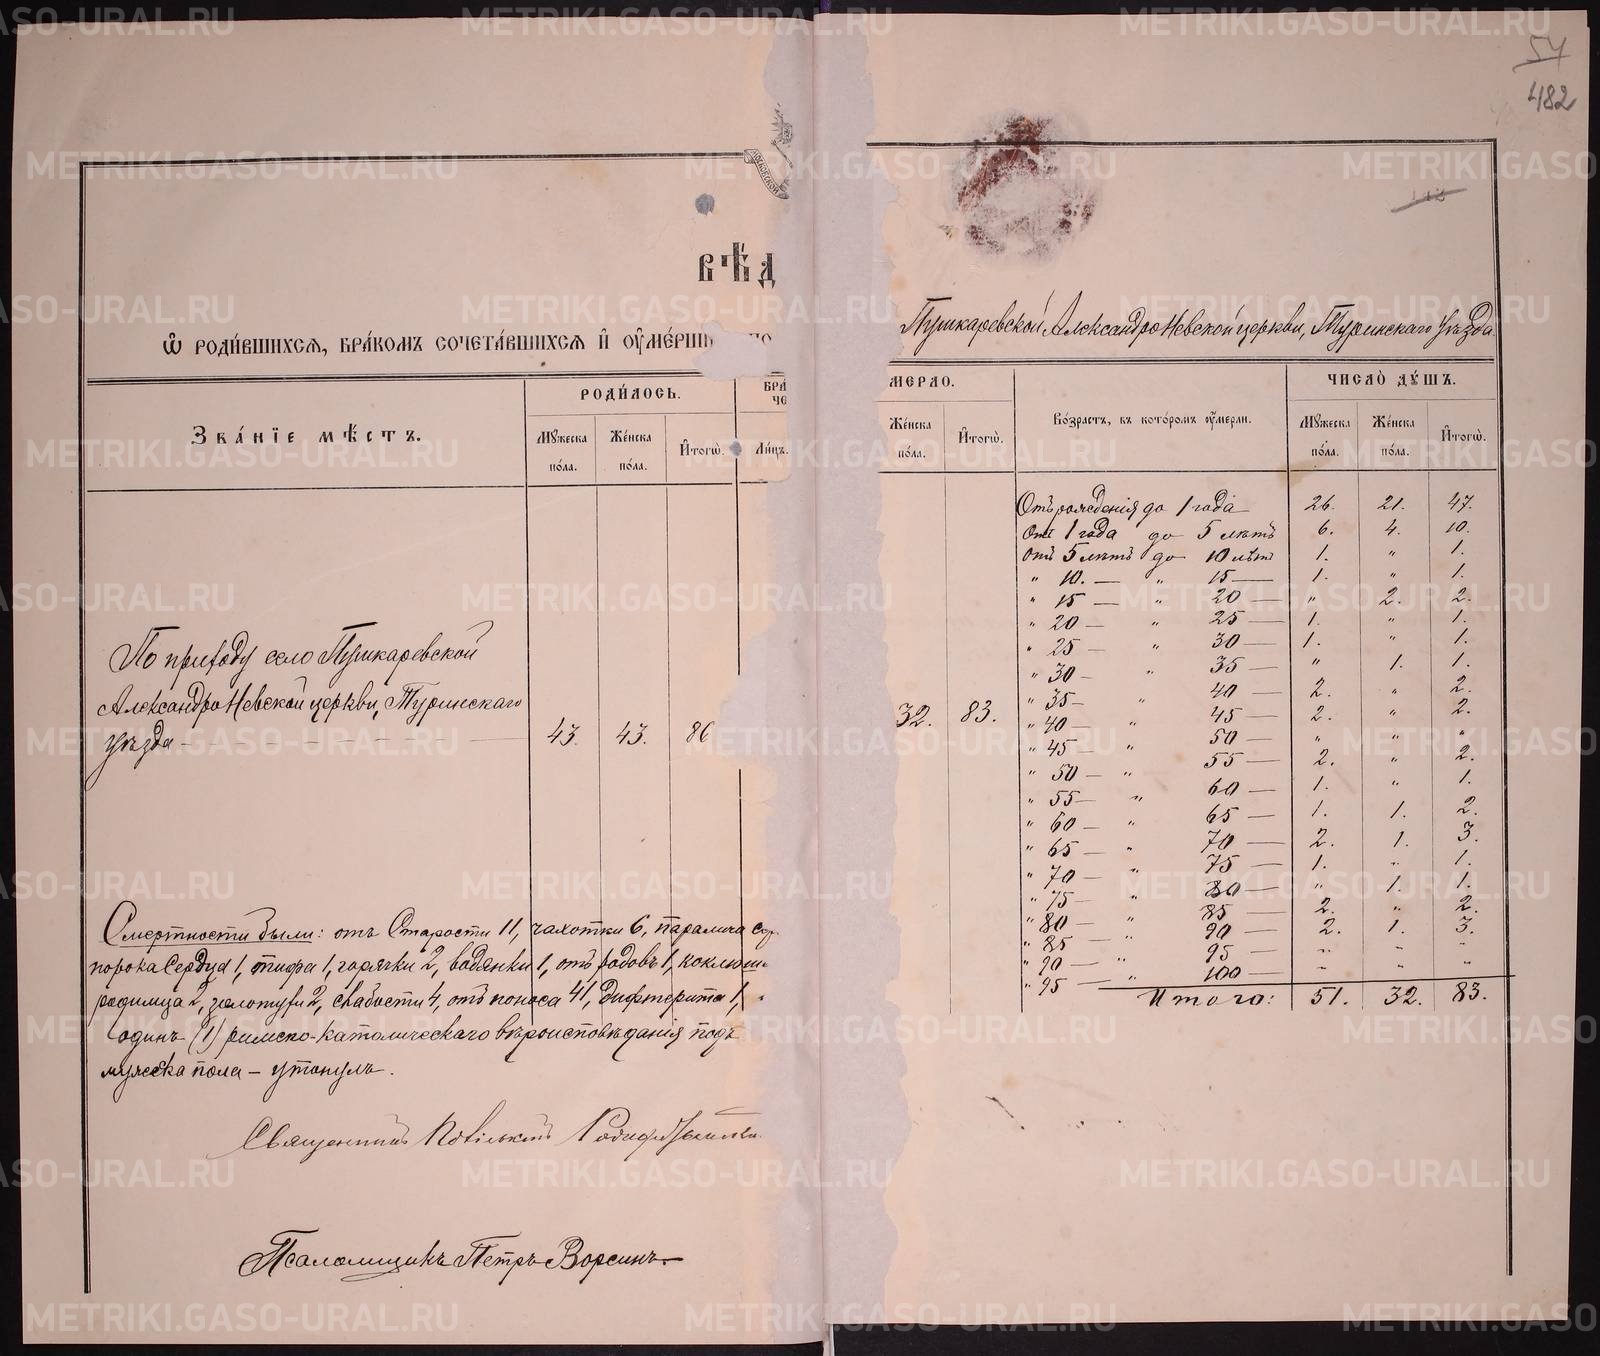 54
482
МОСКОВСКОЙ
ВѢД
Ѡ РОДИ́ВШИХСѦ, БРА́КОМЪ СОЧЕТА́ВШИХСѦ И҆ ОУ҆МЕ́РШИ ПО
Пушкаревской Александро Невской церкви, Туринскаго уѣзда
ЗВА́НІЕ МѢ́СТЪ.
РОДИ́ЛОСЬ.
МУ́ЖЕСКА ПО́ЛА.
ЖЕ́НСКА ПО́ЛА.
И҆ТОГѠ̀.
БРА
ЧЕ
ЛИ́ЦЪ.
МЕРЛО.
ЖЕ́НСКА ПО́ЛА.
И҆ТОГѠ̀.
ВО́ЗРАСТЪ, ВЪ КОТО́РОМЪ ОУ҆́МЕРЛИ.
ЧИСЛО̀ ДУ́ШЪ.
МУ́ЖЕСКА ПО́ЛА.
ЖЕ́НСКА ПО́ЛА.
И҆ТОГѠ̀.
По приходу село Пушкаревской
Александро Невской церкви, Туринскаго
уѣзда — 43. 43. 86
32. 83.
Отъ рожденія до 1 года 26. 21. 47.
отъ 1 года до 5 лѣтъ 6. 4. 10.
отъ 5 лѣтъ до 10 лѣтъ 1. " 1.
" 10. — " 15 — 1. " 1.
" 15 — " 20 — " 2. 2.
" 20 — " 25 — 1. " 1.
" 25 — " 30 — 1. " 1.
" 30 — " 35 — " 1. 1.
" 35 — " 40 — 2. " 2.
" 40 — " 45 — 2. " 2.
" 45 — " 50 — " " "
" 50 — " 55 — 2. " 2.
" 55 — " 60 — 1. " 1.
" 60 — " 65 — 1. 1. 2.
" 65 — " 70 — 2. 1. 3.
" 70 — " 75 — 1. " 1.
" 75 — " 80 — " 1. 1.
" 80 — " 85 — 2. " 2.
" 85 — " 90 — 2. 1. 3.
" 90 — 95 — " " "
" 95 — " 100 — " " "
Итого: 51. 32. 83.
Смертности были: отъ Старости 11, чахотки 6, паралича
порока Сердца 1, тифа 1, горячки 2, водянки 1, отъ родовъ 1, коклюш
родимца 2, золотухи 2, слабости 4, отъ поноса 41, дифтерита 1,
одинъ (1) римско-католическаго вѣроисповѣданія
мужеска пола — утонулъ.
Священникъ
Псаломщикъ Петръ Ворсинъ
METRIKI.GASO-URAL.RU